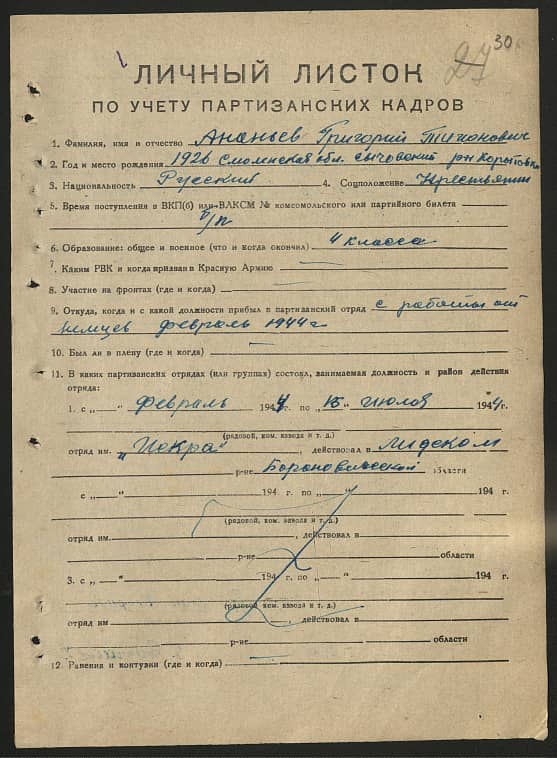 27 30
ЛИЧНЫЙ ЛИСТОК
ПО УЧЕТУ ПАРТИЗАНСКИХ КАДРОВ
1. Фамилия, имя и отчество Ананьев Григорий Тихонович
2. Год и место рождения 1926 Смоленская обл. Сычовский рн
3. Национальность Русский 4. Соцположение Крестьянин
5. Время поступления в ВКП(б) или ВЛКСМ № комсомольского или партийного билета
б/п
6. Образование: общее и военное (что и когда окончил) 4 класса
7. Каким РВК и когда призван в Красную Армию —
8. Участие на фронтах (где и когда) —
9. Откуда, когда и с какой должности прибыл в партизанский отряд с работы от
немцев февраль 1944 г
10. Был ли в плену (где и когда) —
11. В каких партизанских отрядах (или группах) состоял, занимаемая должность и район действия
отряда:
1. с „ “ февраль 1944 г. по „15“ июлоя 1944 г.
(рядовой, ком. взвода и т. д.)
отряд им. „Искра“, действовал в Лидском
р-не Барановичской области
с „ “ 194 г. по „ “ 194 г.
(рядовой, ком. взвода и т. д.)
отряд им. , действовал в
р-не области
3. с „ “ 194 г. по „ “ 194 г.
(рядовой, ком. взвода и т. д.)
отряд им , действовал в
р-не области
12. Ранения и контузии (где и когда) —